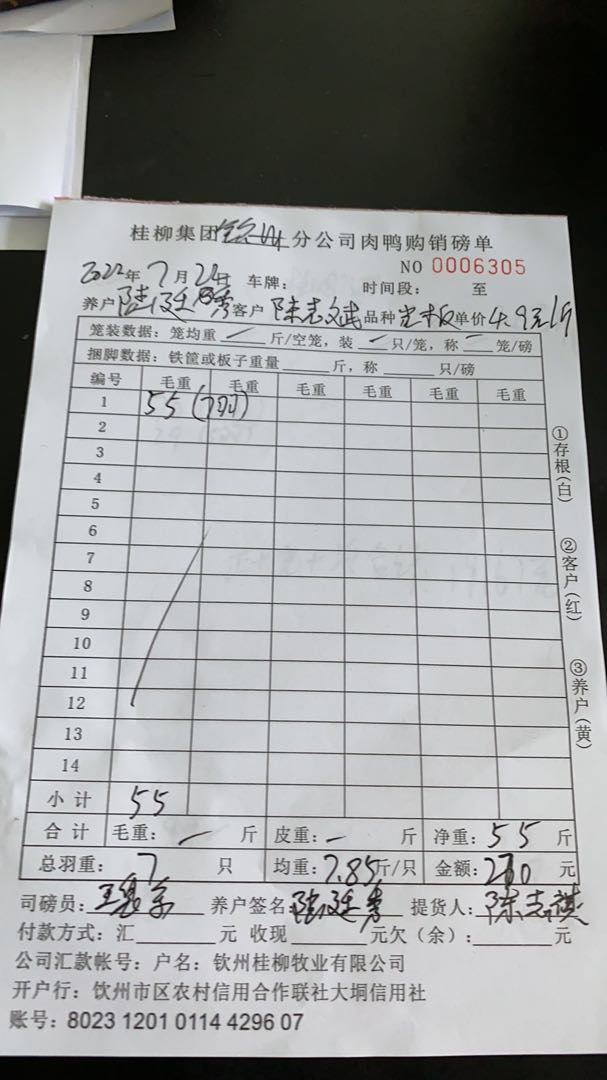 桂柳集团钦州分公司肉鸭购销磅单
NO 0006305
2022年7月24日 车牌: 时间段: 至
养户 客户 陈志斌 品种 单价4.9元/斤
笼装数据: 笼均重 — 斤/空笼, 装 — 只/笼, 称 — 笼/磅
捆脚数据: 铁筐或板子重量 斤, 称 只/磅
编号 毛重 毛重 毛重 毛重 毛重 毛重
1 55 (7只)
2
3
4
5
6
7
8
9
10
11
12
13
14
小计 55
合计 毛重: — 斤 皮重: — 斤 净重: 55 斤
总羽重: 7 只 均重: 7.85斤/只 金额: 270 元
司磅员: 养户签名 提货人: 陈志
付款方式: 汇 元 收现 元欠(余): 元
公司汇款帐号: 户名: 钦州桂柳牧业有限公司
开户行: 饮州市区农村信用合作联社大垌信用社
账号: 8023 1201 0114 4296 07
①存根(白)
②客户(红)
③养户(黄)